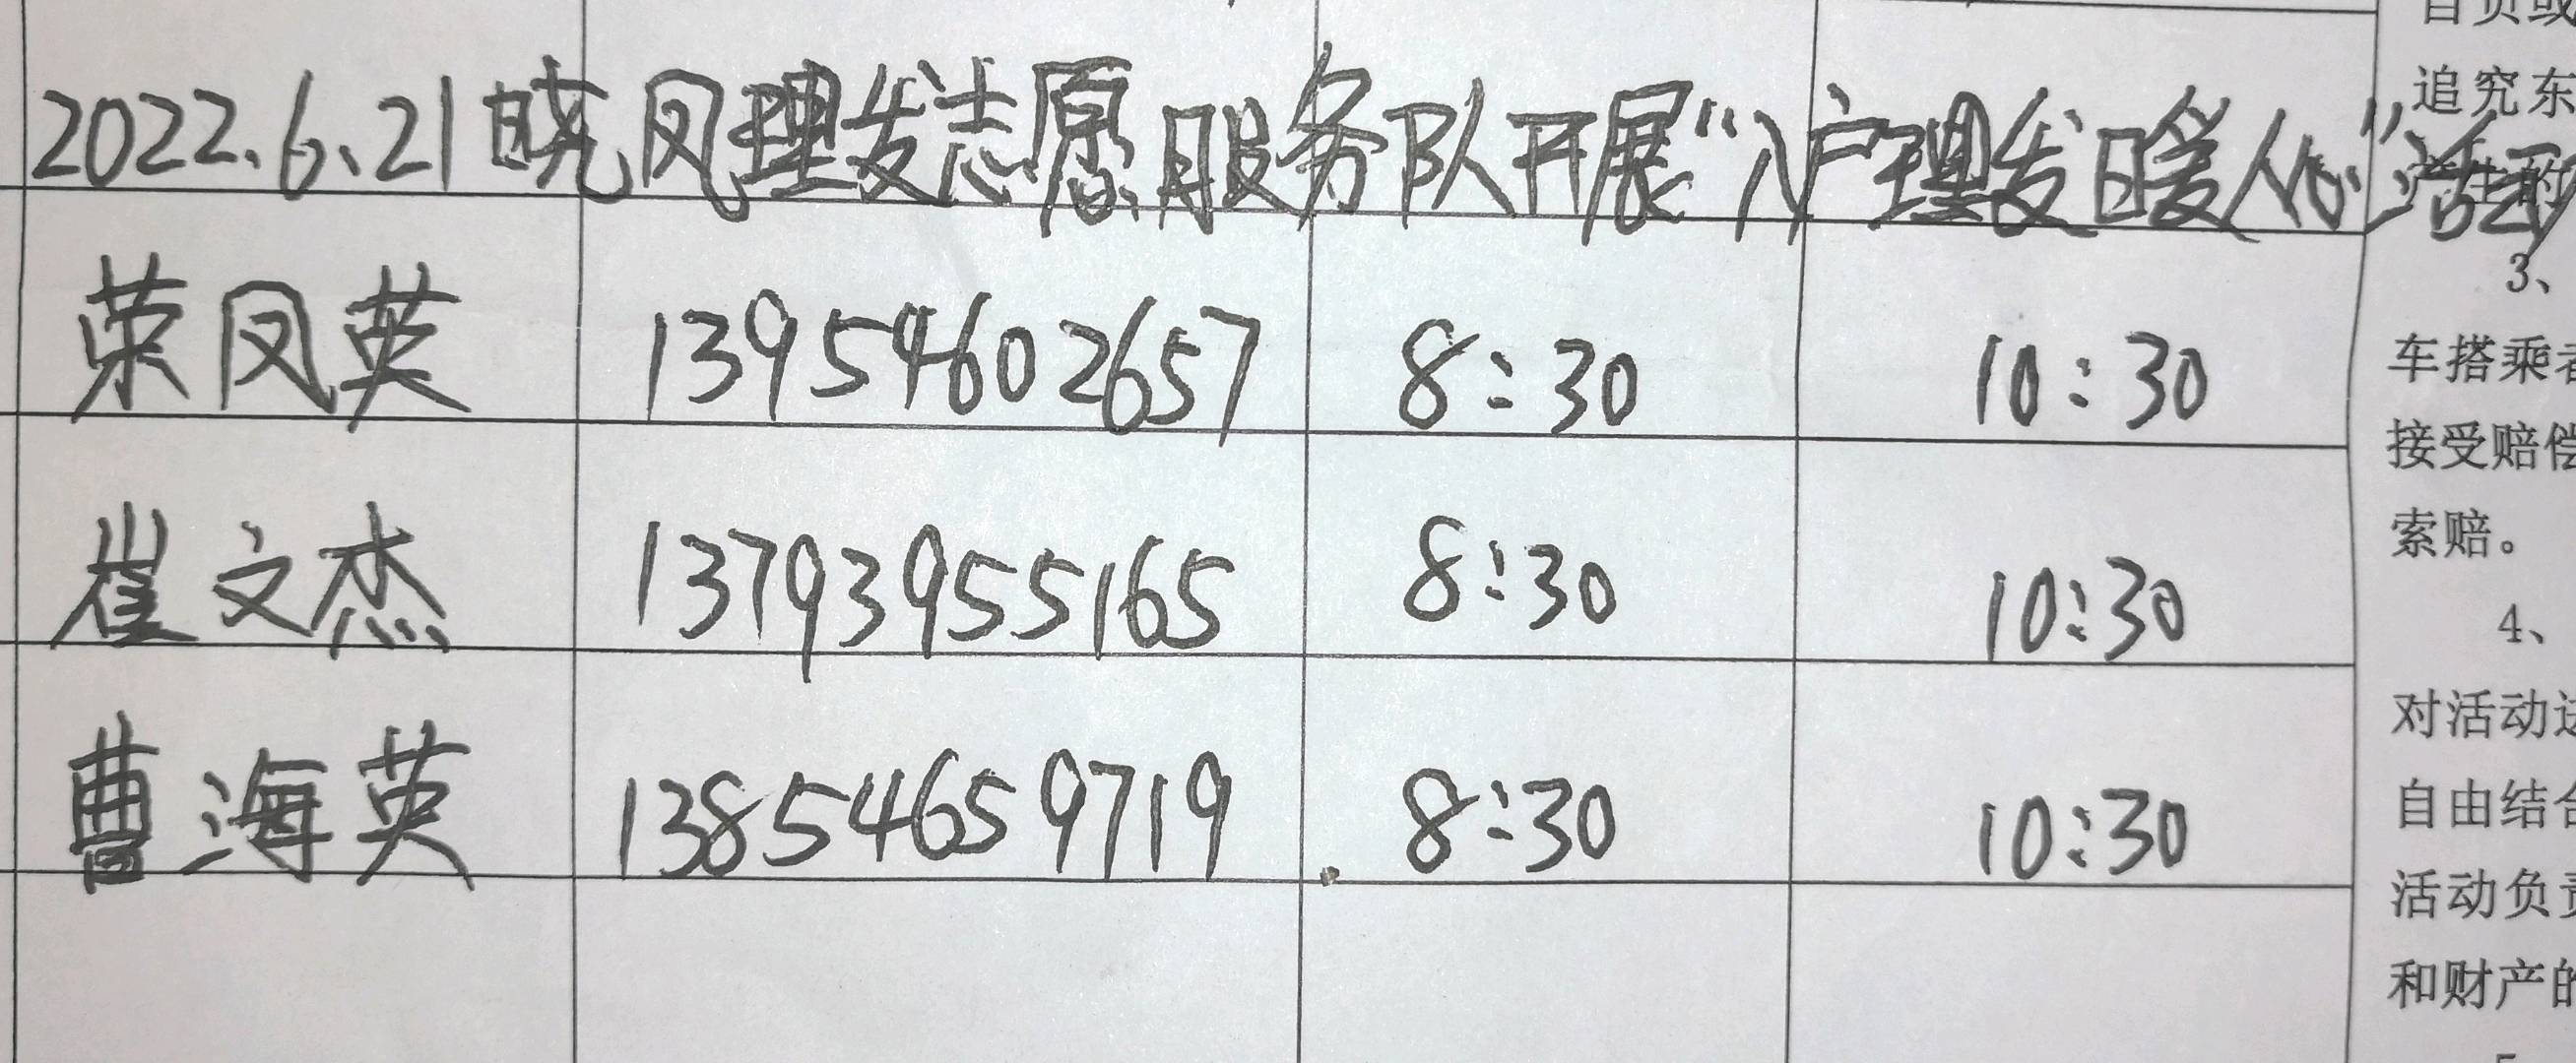 2022.6.21晓凤理发志愿服务队开展“入户理发暖人心”活动
荣凤英 13954602657 8:30 10:30
崔文杰 13793955165 8:30 10:30
曹海英 13854659719 8:30 10:30
追究东
3、
车搭乘者
接受赔偿
索赔。
4、
对活动进
自由结合
活动负责
和财产的